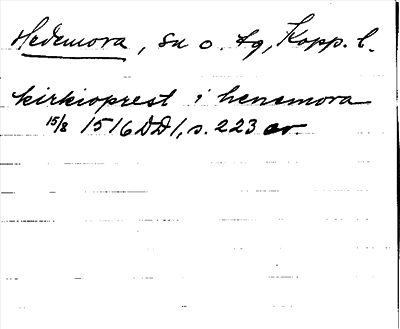 Hedemora, sn o. tg, Kopp. l.
kirkioprest i henemora
15/8 1516 DD 1, s. 223 or.